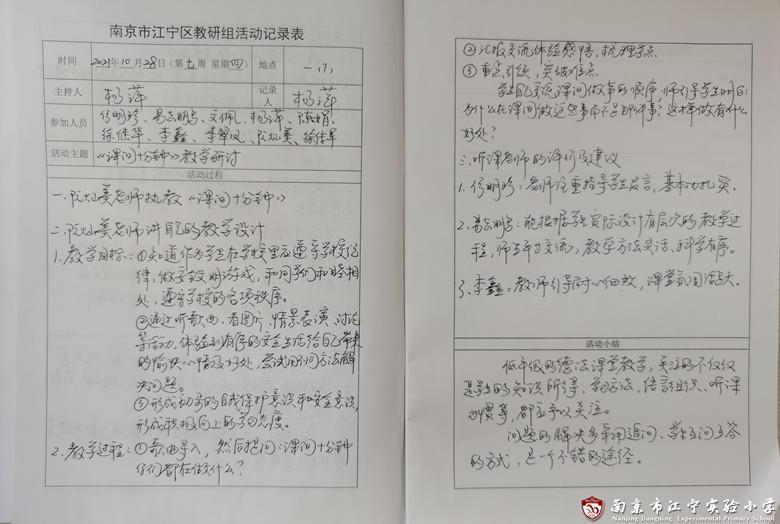 南京市江宁区教研组活动记录表
时间 2021年10月28日（第九周 星期四） 地点 一.17
主持人 杨萍 记录人 杨萍
参加人员 易志鹏、文佩、杨萍、陈娟、
徐继华、李鑫、李翠凤、阮灿美、徐佳军
活动主题 《课间十分钟》教学研讨
活动过程
一.阮灿美老师执教《课间十分钟》
二.阮灿美老师讲自己的教学设计
1.教学目标：①知道作为学生在学校里应遵守学校纪
律，做文明游戏，和同学们和睦相
处，遵守学校的各项秩序。
②通过听歌曲、看图片、情景表演、讨论
等活动，体验到有序的安全生活给自己带来
的愉快心情及好处，尝试用不同方法解
决问题。
③形成初步的自我保护意识和安全意识，
形成积极向上的生活态度。
2.教学过程：①歌曲导入，然后提问：课间十分钟
你们都在做什么？
②汇报交流体验感悟，梳理重点
③重点引领，突破难点
学生自己交流课间做事的顺序，师引导学生明白：
为什么在课间做这些事而不是那件事，这样做有什么
好处？
三.听课老师的评价及建议
1.老师注重指导学生发言，基本功扎实。
2.易志鹏：能根据学生实际设计有层次的教学过
程，师生平等交流，教学方法灵活、科学有序。
3.李鑫：教师引导耐心细致，课堂氛围活跃。
活动小结
低年级的德法课堂教学，关注的不仅仅
是学生的知识所得，学习方法、语言组织、听课
习惯等，都应予以关注。
问题的解决多采用追问、学生互问互答
的方式，是一个不错的途径。
南京市江宁实验小学
Nanjing Jiangning Experimental Primary School